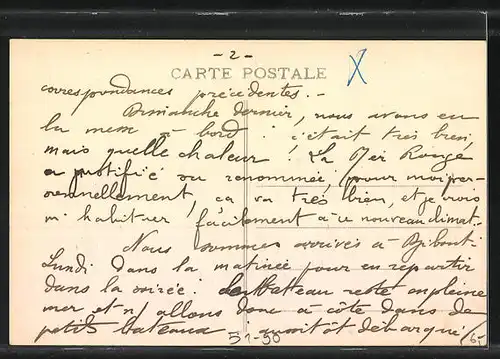 - 2 -
CARTE POSTALE
X
correspondances précédentes. -
Dimanche dernier, nous avons eu
la messe à bord : c'était très bien,
mais quelle chaleur ! La Mer Rouge
a justifié sa renommée, (pour moi per-
sonnellement, ça va très bien, et je crois
m'habituer facilement à ce nouveau climat.
Nous sommes arrivés à Djibouti
Lundi dans la matinée pour en repartir
dans la soirée : le bateau reste en pleine
mer et n/ allons donc à côte dans de
petits bateaux aussitôt débarqué
51-50